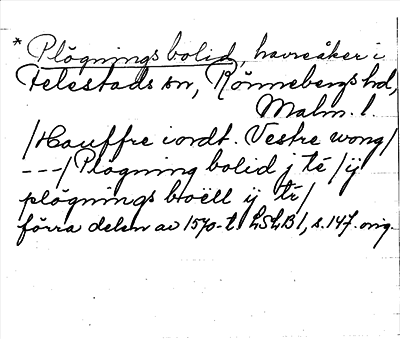 * Plögnings bolid, havreåker i
Felestads sn, Rönnebergs hd,
Malm. l.
/Hauffre iordt. Vestre wong/
---/ Plögning bolid j té /ij
plögnings boëll ij tî/
förra delen av 1570-t. LSLB 1, s. 147. orig.